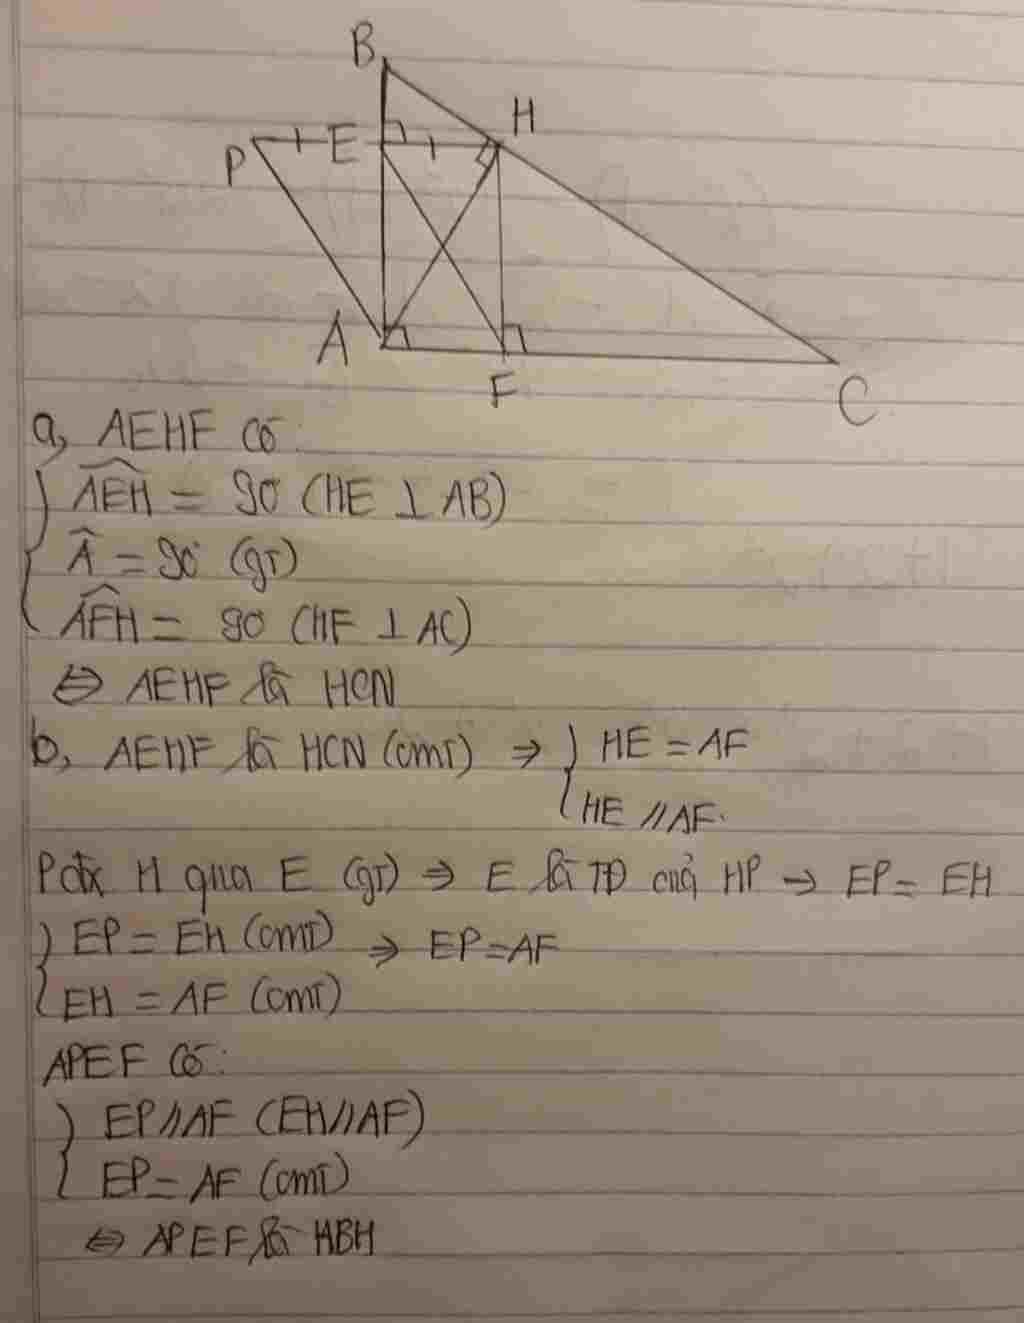 B
H
P
E
A
F
C
a, AEHF có:
{ \widehat{AEH} = 90° (HE ⊥ AB)
\widehat{A} = 90° (gt)
\widehat{AFH} = 90° (HF ⊥ AC)
⇔ AEHF là HCN
b, AEHF là HCN (cmt) ⇒ { HE = AF
HE // AF.
P đx H qua E (gt) ⇒ E là TĐ của HP → EP = EH
{ EP = EH (cmt) ⇒ EP = AF
EH = AF (cmt)
APEF có:
{ EP // AF (EH // AF)
EP = AF (cmt)
⇔ APEF là HBH